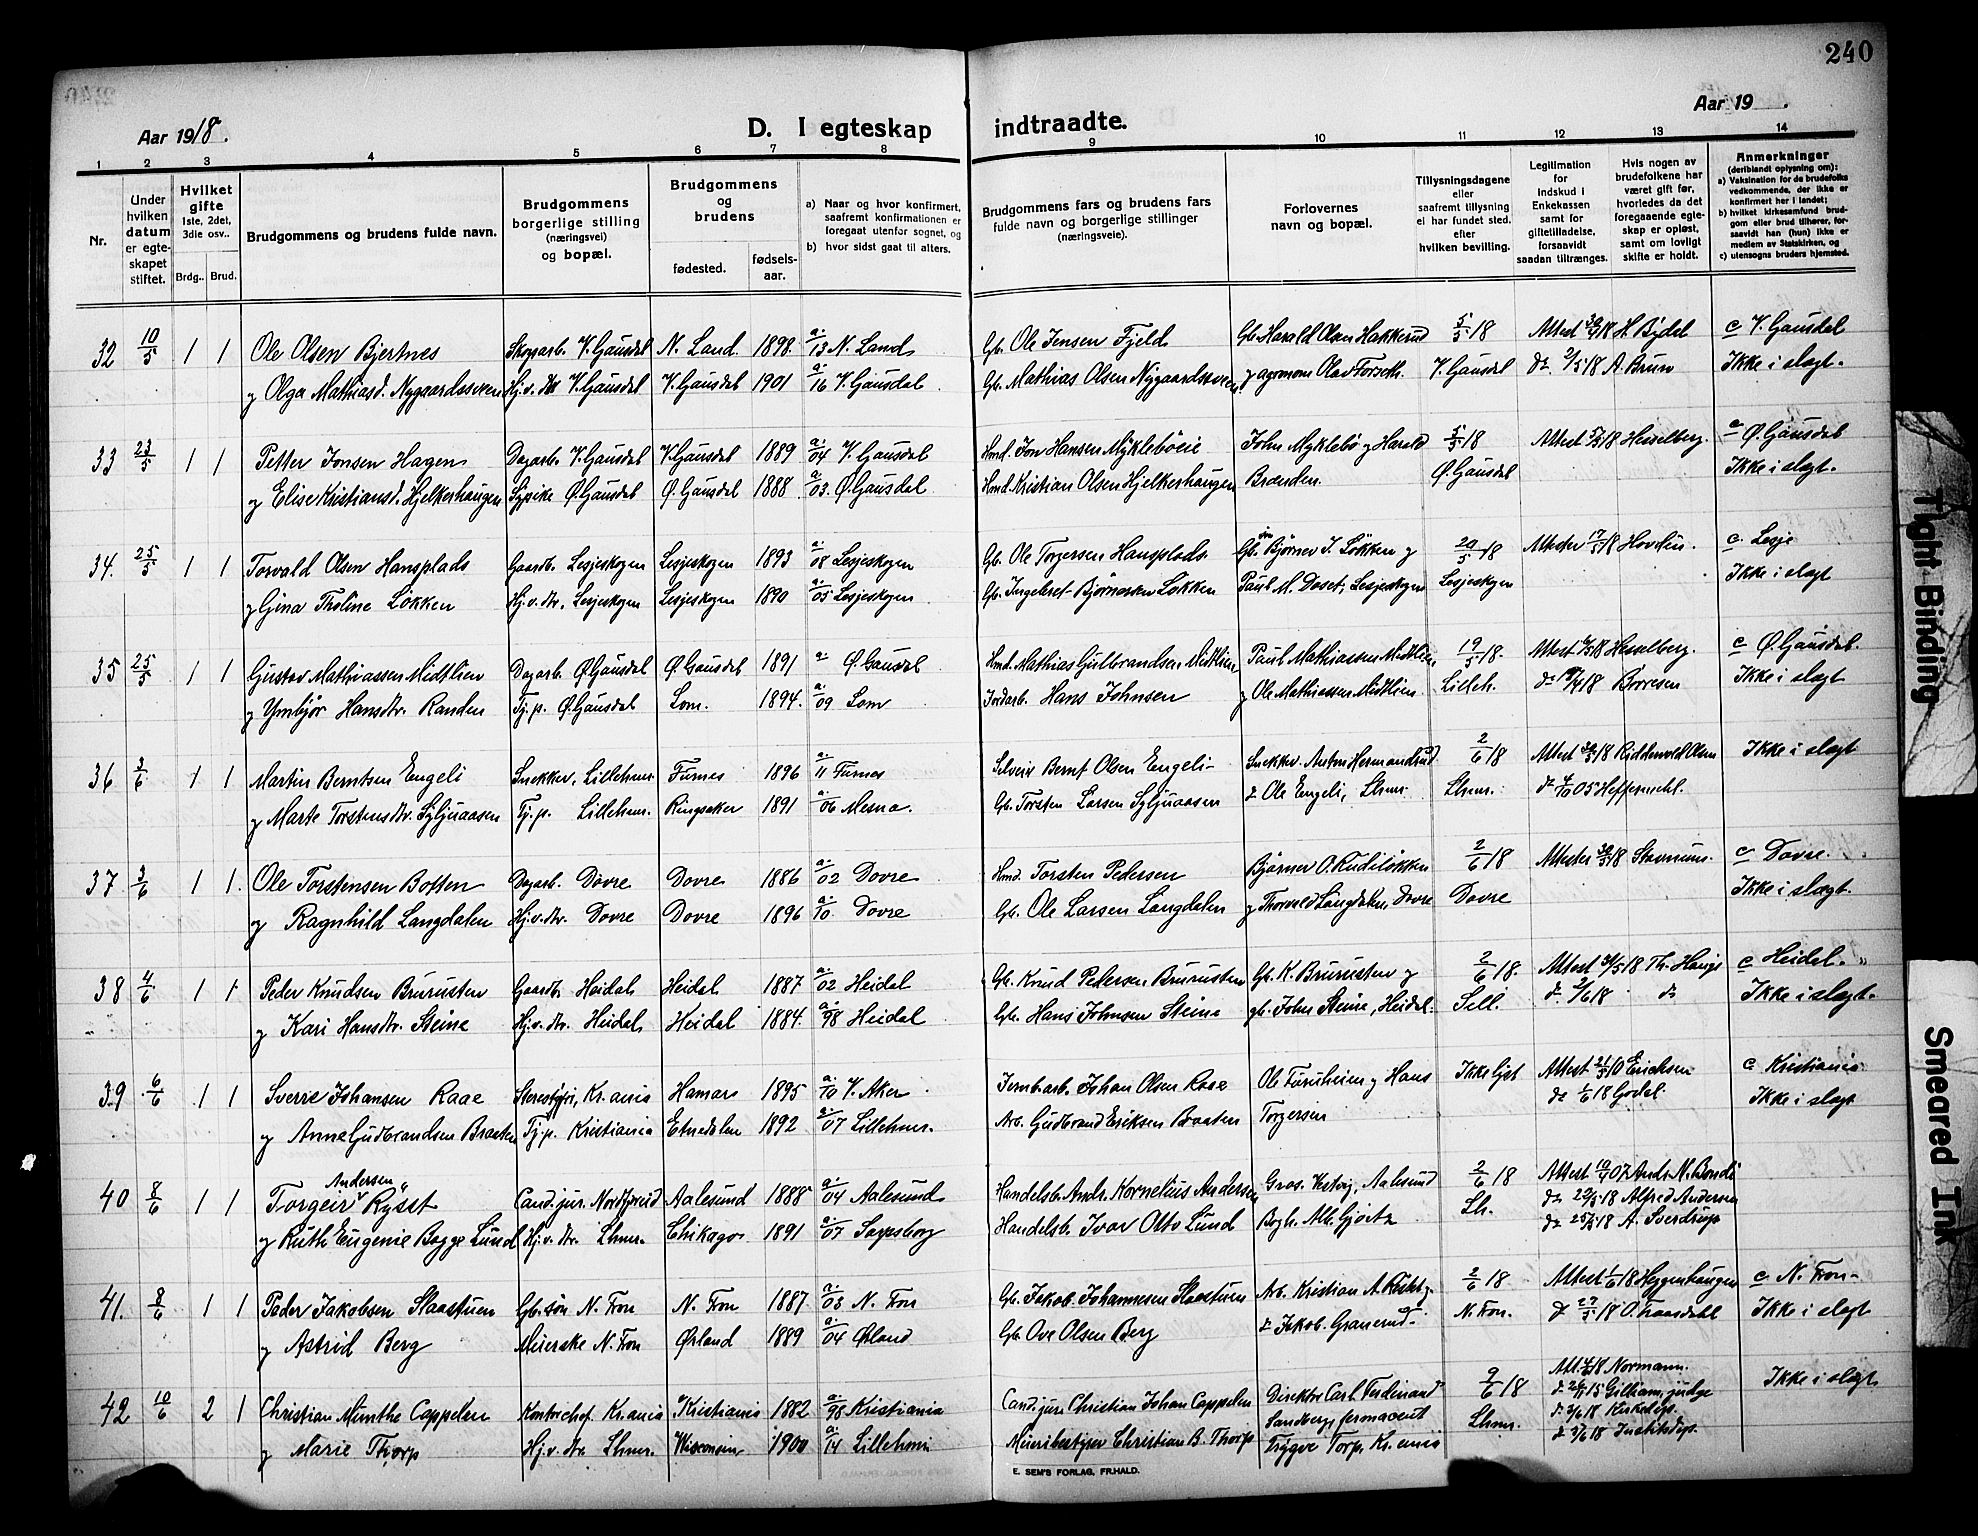 240
Aar 1918.
D. I egteskap indtraadte.
Aar 19    .
1 2 3 4 5 6 7 8 9 10 11 12 13 14
Nr.
Under hvilken datum er egteskapet stiftet.
Hvilket gifte 1ste, 2det, 3die osv..
Brdg.. Brud.
Brudgommens og brudens fulde navn.
Brudgommens borgerlige stilling (næringsvei) og bopæl.
Brudgommens og brudens
fødested. fødselsaar.
a) Naar og hvor konfirmert, saafremt konfirmationen er foregaat utenfor sognet, og
b) hvor sidst gaat til alters.
Brudgommens fars og brudens fars fulde navn og borgerlige stillinger (næringsveie).
Forlovernes navn og bopæl.
Tillysningsdagene eller saafremt tillysning ei har fundet sted, efter hvilken bevilling.
Legitimation for indskud i Enkekassen samt for giftetilladelse, forsaavidt saadan tiltrænges.
Hvis nogen av brudefolkene har været gift før, hvorledes da det foregaaende egteskap er opløst, samt om lovligt skifte er holdt.
Anmerkninger (deriblandt oplysning om):
a) Vaksination for de brudefolks vedkommende, der ikke er konfirmert her i landet;
b) hvilket kirkesamfund brudgom eller brud tilhører, forsaavidt han (hun) ikke er medlem av Statskirken, og
c) utensogns bruders hjemsted.
32 10/5 1 1 Ole Olsen Bjertnes Skogarb. V. Gausdal N. Land. 1898. a. 13 N. Land Gb. Ole Jensen Fjeld Gb. Harald Olsen Hakkerud 5/5 18 Attest 30/4 18 H. Bijdel c V. Gausdal
y Olga Mathiasd. Nygaardssveen Hj.v. dtr V. Gausdal V. Gausdal 1901 a. 16 V. Gausdal Gb. Mathias Olsen Nygaardssveen y agronom Olav Forseth. V. Gausdal do 2/5 18 A. Bruun Ikke i slægt.
33 23/5 1 1 Petter Jonsen Hagen Dagarb. V. Gausdal V. Gausdal 1889 a. 04 V. Gausdal Hmd. Jon Hansen Myklebøeie John Myklebø y Harald 5/5 18 Attest 5/5 18 Hesselberg. c Ø. Gausdal
y Elise Kristiansd. Hjelkerhaugen Sypike Ø. Gausdal Ø. Gausdal 1888 a. 03. Ø. Gausdal Hmd. Kristian Olsen Hjelkerhaugen Brænden. Ø. Gausdal Ikke i slægt.
34. 25/5 1 1 Torvald Olsen Hansplads Gaardb. Lesjeskogen Lesjeskogen 1893 a. 08 Lesjeskogen Gb. Ole Torgersen Hansplads Gb. Bjørner J. Løkken y 20/5 18 Attester 17/5 18 Hovdin. c. Lesje
y Gina Tholine Løkken Hj.v. dtr. Lesjeskogen Lesjeskogen 1890 a. 05 Lesjeskogen Gb. Ingebret Bjørnersen Løkken Paul M. Doset, Lesjeskogen Lesjeskogen Ikke i slægt
35 25/5 1 1 Gustav Mathiassen Midtlien Dagarb. Ø. Gausdal Ø. Gausdal 1891 a. Ø. Gausdal Hmd. Mathias Gulbrandsen Midtlien Paul Mathiassen Midtlien 19/5 18. Attest 16/5 18 Hesselberg. c Ø. Gausdal.
y Ymbjør Hansdtr. Randen Tj.p. Ø. Gausdal Lom. 1894. a. 09 Lom Jordarb. Hans Johnsen y Ole Mathiassen Midtlien Lilleh. do 19/4 18 Børresen Ikke i slægt
36 3/6 1 1 Martin Berntsen Engeli Snekker, Lillehmr. Furnes 1896 a. 11 Furnes Selveier Bernt Olsen Engeli Snekker. Anton Hermandrud 2/6 18 Attest 30/5 18 Riddervold Olsen Ikke i slægt
y Marte Torstensdtr. Syljuaasen Tj.p. Lillehmr. Ringsaker 1891 a. 06 Mesna. Gb. Torsten Larsen Syljuaasen & Ole Engeli, Lhmr. Lhmr. d. 4/10 05 Heffermehl.
37 3/6 1 1. Ole Torstensen Botten Dagarb. Dovre Dovre 1886 a. 02 Dovre Hmd. Torsten Pedersen Bjørner O. Rudiløkken 2/6 18 Attester 30/5 18 Stavnum. c Dovre.
y Ragnhild Langdalen Hj.v. dtr. Dovre Dovre 1896 a. 10. Dovre Gb. Ole Larsen Langdalen y Thorvald Langdalen, Dovre Dovre Ikke i slægt.
38 4/6 1 1 Peder Knudsen Bruristen Gaardb. Heidal Heidal 1887 a. 02 Heidal Gb. Knud Pedersen Bruristen Gb. K. Bruristen y 2/6 18. Attest 21/5 18 Th. Hauge c Heidal.
y Kari Hansdtr. Steine Hj.v. dtr. Heidal Heidal 1884. a. 98 Heidal Gb. Hans Johnsen Steine gb. John Steine, Heidal. Sell. d. 2/6 18 do Ikke i slægt.
39 6/6 1 1 Sverre Johansen Raae Stereotypi, Kr.ania Hamar 1895 a. 10 V. Aker Jernb.arb. Johan Olsen Raae Ole Furuheim y Hans Ikke lyst Attest 21/5 10 Erichsen c Kristiania
y Anne Gudbrandsen Braaten Tj.p. Kristiania Etnedalen 1892 a. 07 Lillehmr. Arb. Gudbrand Eriksen Braaten Torgersen do 1/6 18 Godal. Ikke i slægt
40 8/6 1 1 Torgeir Andersen Rysst Cand. jur. Nordfjoreid Aalesund 1888 a. 04 Aalesund Handelsb. Andr. Kornelius Andersen Gros. Kestvig, Aalesund 2/6 18 Attest 10/9 07 Andr. N. Bonde
y Ruth Eugenie Bagge Lund Hj.v. dtr. Lhmr. Chikago 1891 a. 07 Sarpsborg Handelsb. Ivar Otto Lund Bogh. Alb. Gjørtz Lh. do 20/5 18 Alfred Andersen
do 25/5 18 A. Sverdrup
41. 8/6 1 1 Peder Jakobsen Slaastuen Gb. søn N. Fron N. Fron 1887 a. 03 N. Fron Gb. Jakob Johannesen Slaastuen Arb. Kristian A. Kvist 2/6 18 Attest 1/6 18 Heggenhaugen c N. Fron
y Astrid Berg Meierske N. Fron Ørland 1889 a. 04 Ørland Gb. Ove Olsen Berg & Jakob Granerud N. Fron. d. 27/5 18 O. Traasdahl Ikke i slægt
42 10/6 2 1 Christian Munthe Cappelen Kontorchef Kr.ania Kristiania 1882 a. 98 Kristiania Cand. jur. Christian Johan Cappelen Direktør Carl Ferdinand 9/6 18 Att. 18 Normann. Ikke i slægt
y Marie Thorp Hj.v. dtr. Lhmr. Wisconsin 1900 a. 14 Lillehmr Meieribestyrer Christian B. Thorp Sandberg fermaaent Lhmr. 15 Gilliam, judge
Trygve Torp, Kr.ania d. 3/6 18 Kirkedep.
d. 3/6 18 Justitsdep.
E. SEM'S FORLAG, FR.HALD.
Tight Binding
Smeared Ink